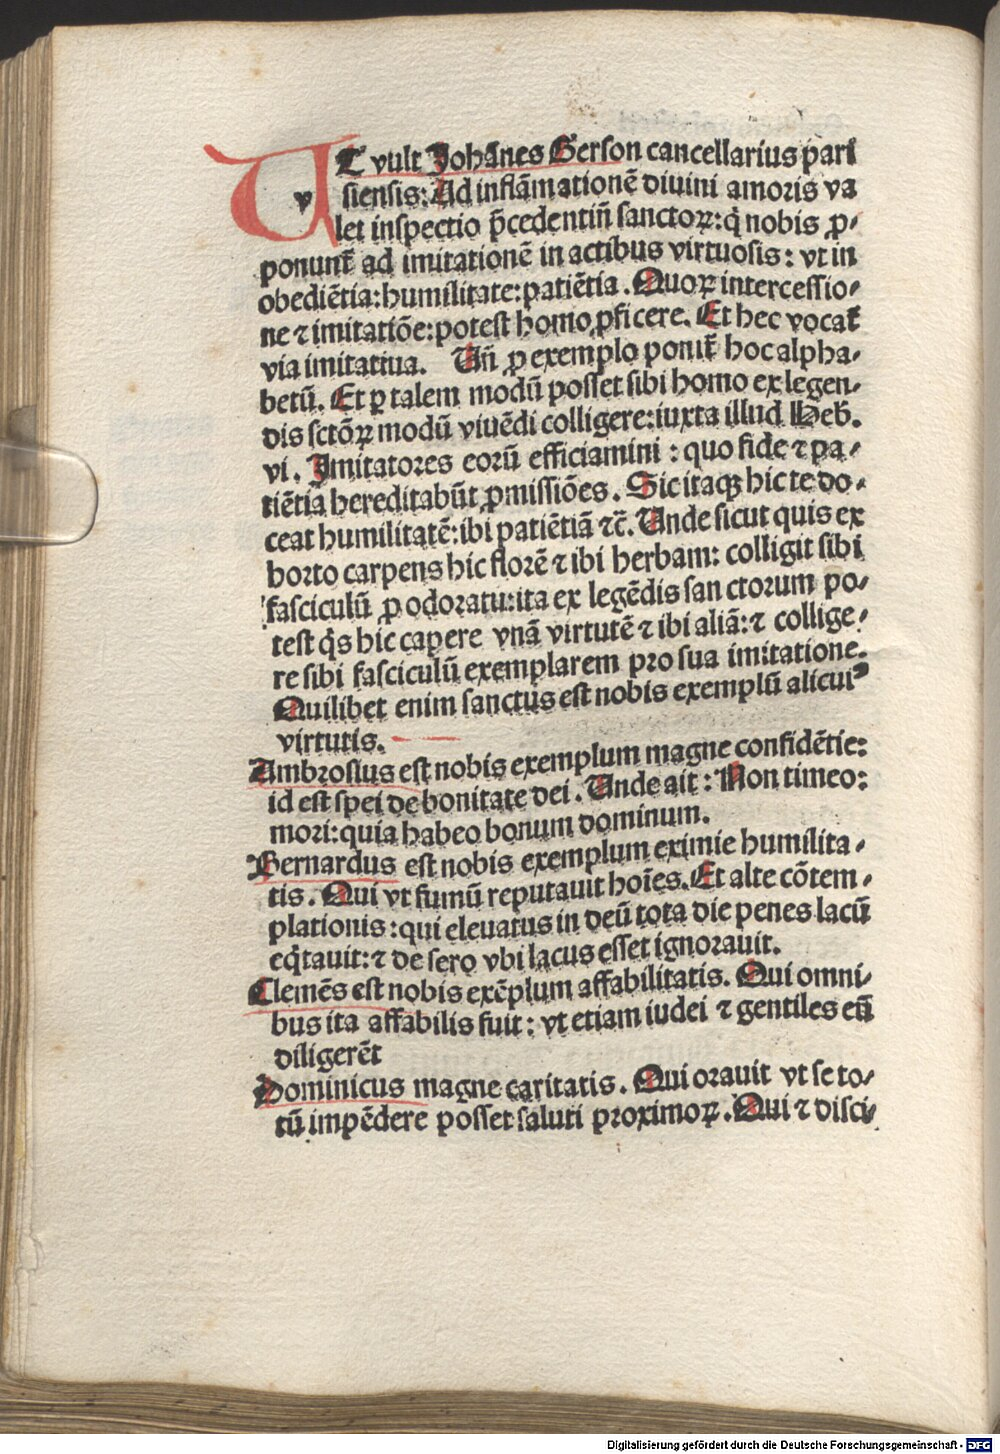 UT vult Johānes Gerson cancellarius pari
v siensis: Ad inflāmationē diuini amoris va
let inspectio p̄cedentiū sanctoꝝ: q̇ nobis ꝓ-
ponunt̄ ad imitationē in actibus virtuosis: vt in
obediētia: humilitate: patiētia. Quoꝝ intercessio-
ne ⁊ imitatiōe: potest homo ꝓficere. Et hec vocat̄
via imitatiua. Vn̄ ꝓ exemplo ponit̄ hoc alpha-
betū. Et ꝑ talem modū posset sibi homo ex legen-
dis sctōꝝ modū viuēdi colligere: iuxta illud Heb̄.
vi. Imitatores eorū efficiamini: quo fide ⁊ pa-
tiētia hereditabūt ꝓmissiōes. Sic itaqꝫ hic te do-
ceat humilitatē: ibi patiētiā ⁊c̄. Unde sicut quis ex
horto carpens hic florē ⁊ ibi herbam: colligit sibi
fasciculū ꝓ odoratu: ita ex legēdis sanctorum po-
test q̇s hic capere vnā virtutē ⁊ ibi aliā: ⁊ collige-
re sibi fasciculū exemplarem pro sua imitatione.
Quilibet enim sanctus est nobis exemplū alicuiꝰ
virtutis.
Ambrosius est nobis exemplum magne confidētie:
id est spei de bonitate dei. Unde ait: Non timeo:
mori: quia habeo bonum dominum.
Bernardus est nobis exemplum eximie humilita-
tis. Qui vt fumū reputauit hoīes. Et alte cōtem-
plationis: qui eleuatus in deū tota die penes lacū
eq̇tauit: ⁊ de sero vbi lacus esset ignorauit.
Clemēs est nobis exēplum affabilitatis. Qui omni-
bus ita affabilis fuit: vt etiam iudei ⁊ gentiles eū
diligerēt
Dominicus magne caritatis. Qui orauit vt se to-
tū impēdere posset saluti proximoꝝ. Qui ⁊ disci-
Digitalisierung gefördert durch die Deutsche Forschungsgemeinschaft - DFG